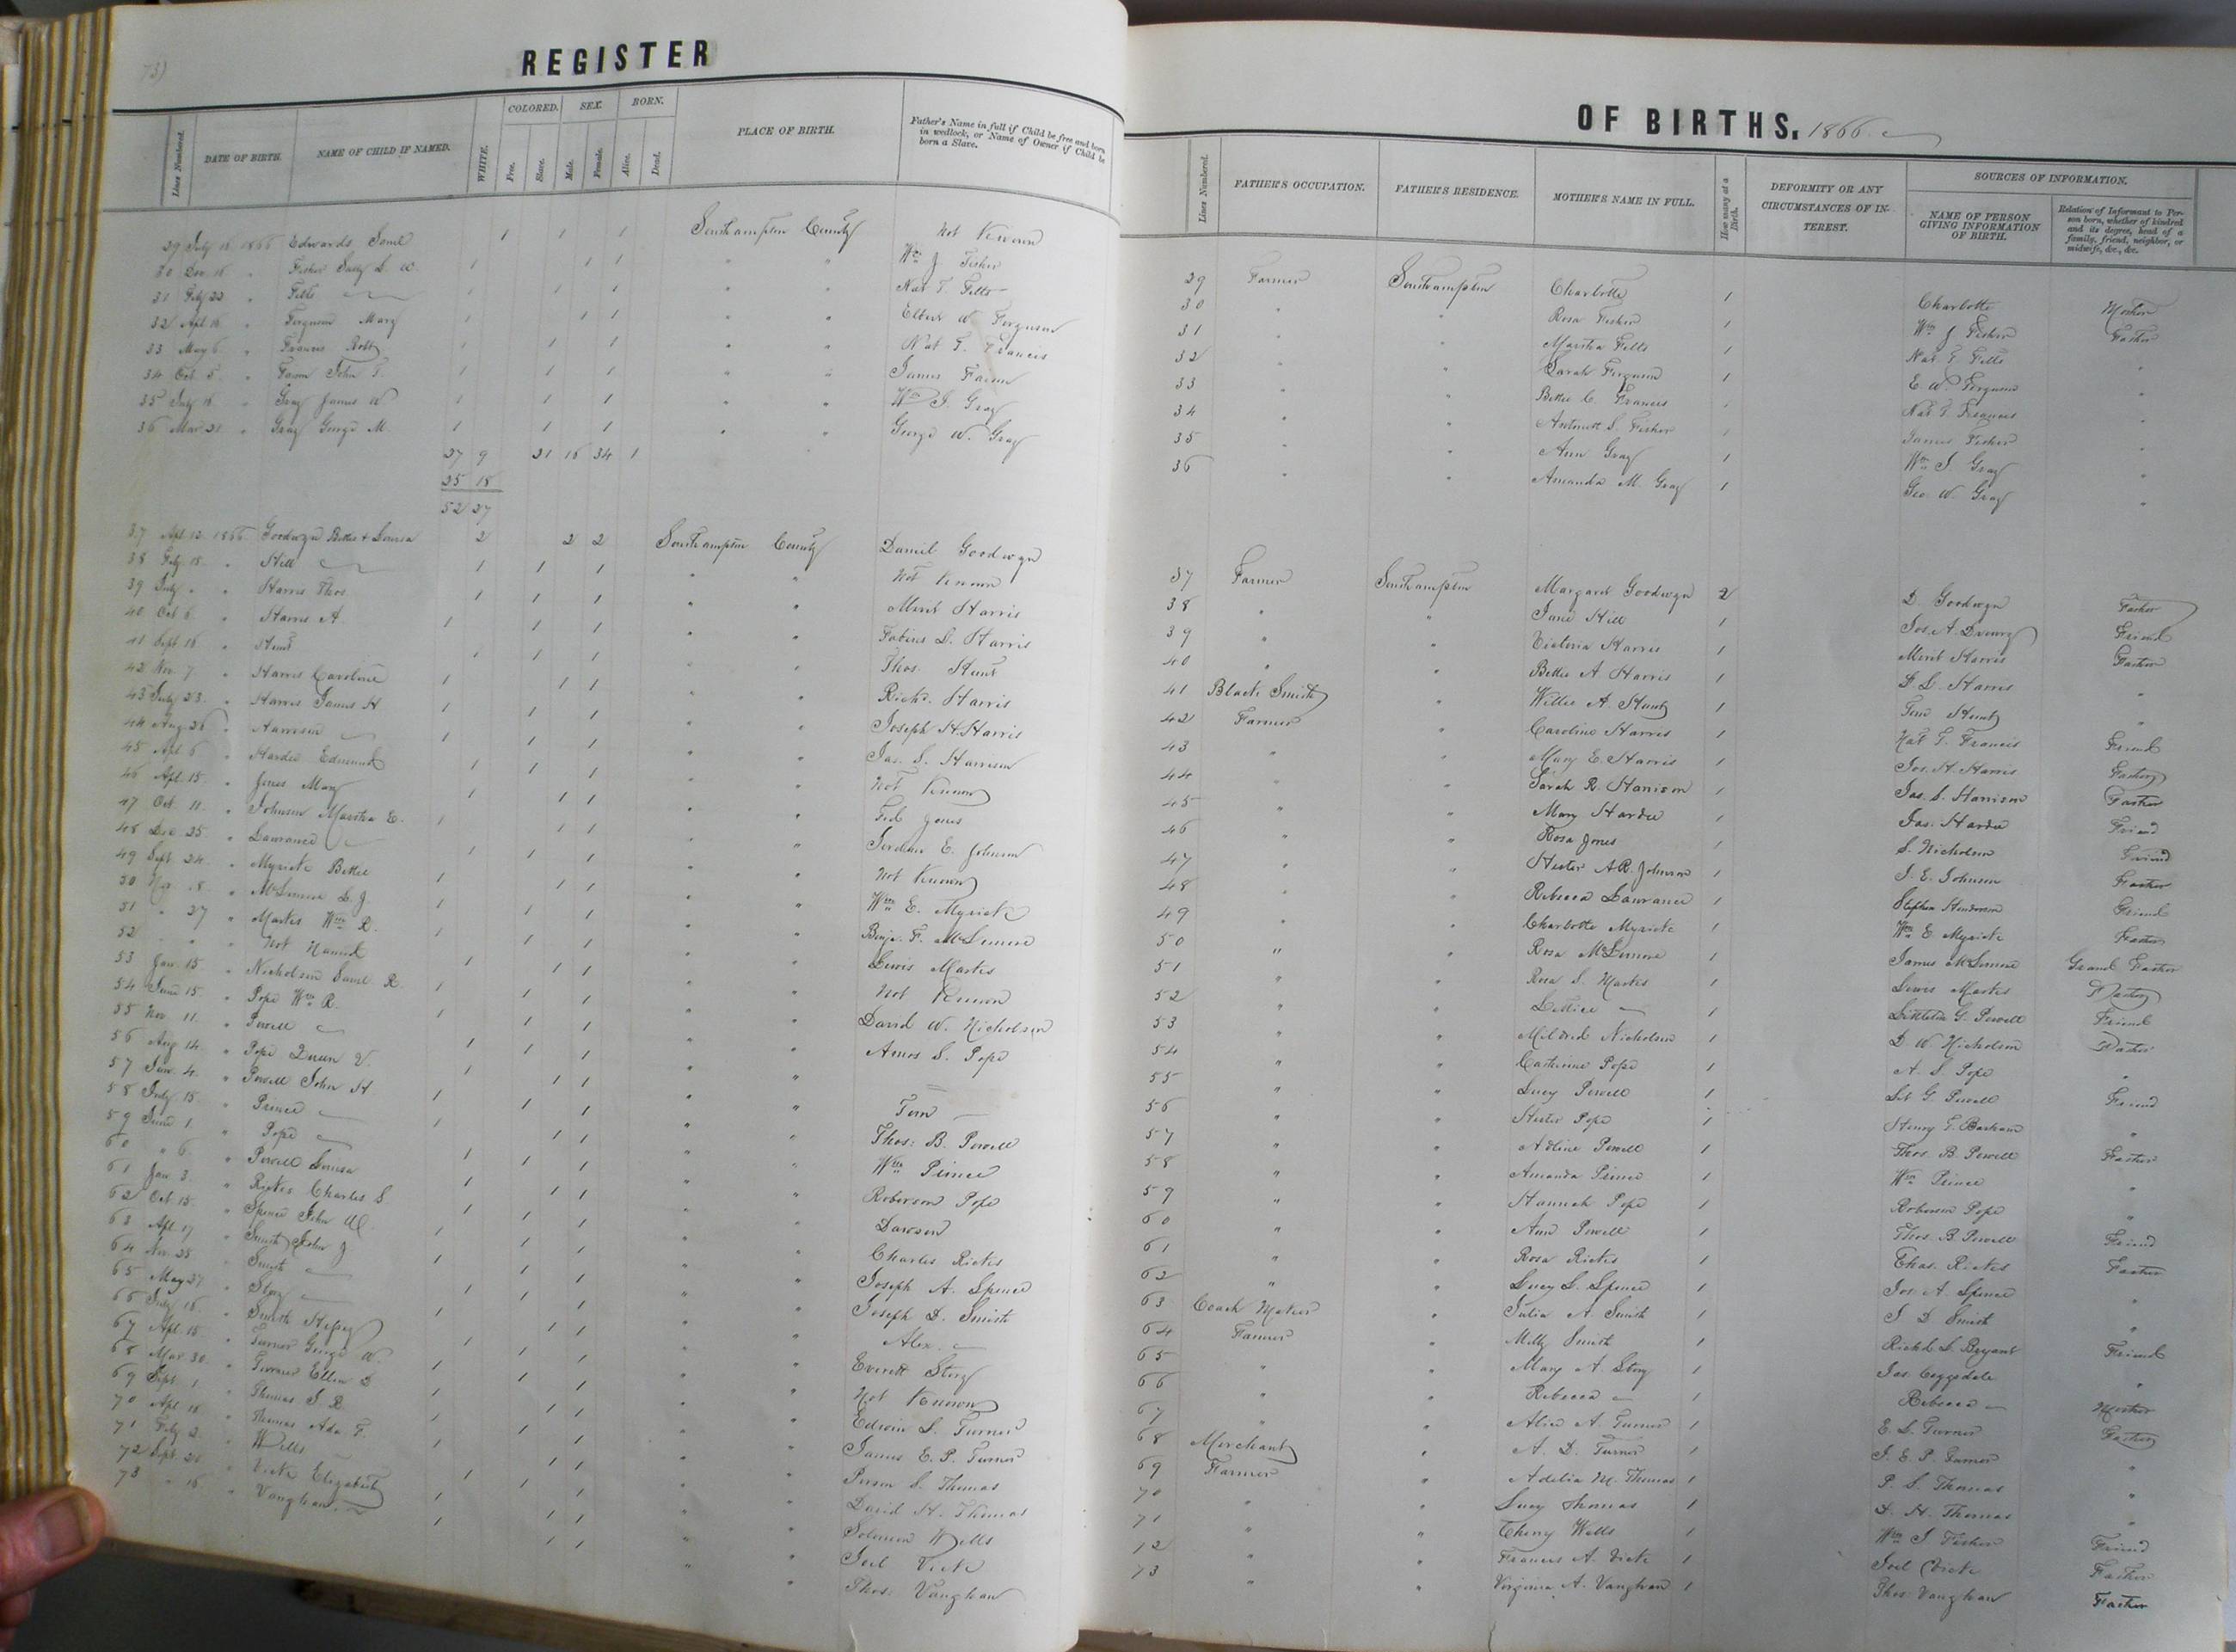 73)
REGISTER
Lines Numbered. DATE OF BIRTH. NAME OF CHILD IF NAMED. WHITE. COLORED. Free. Slave. SEX. Male. Female. BORN. Alive. Dead. PLACE OF BIRTH. Father's Name in full if Child be free and born in wedlock, or Name of Owner if Child be born a Slave.
29 July 15 1866 Edwards Saml 1 1 1 Southampton County Not Known
30 Dec. 15 " Fisher Sally L. W. 1 1 1 " " Wm J Fisher
31 Feby 22 " Felts 1 1 1 " " Nat T. Felts
32 Apl 16 " Ferguson Mary 1 1 1 " " Elbert W. Ferguson
33 May 6 " Francis Robt 1 1 1 " " Nat T. Francis
34 Oct. 5 " John T. 1 1 1 " " James
35 July 16 " Gray James W 1 1 1 " " Wm J. Gray
36 Mar 21 " Gray George M. 1 1 1 " " George W. Gray
27 9 21 16 34 1
25 18
52 27
37 Apl. 12 1866 Goodwyn Bettie & Louisa 2 2 2 Southampton County Daniel Goodwyn
38 Feby 15 " Hill 1 1 1 " " Not Known
39 July " " Harris Thos. 1 1 1 " " Merit Harris
40 Oct 6 " Harris A. 1 1 1 " " L. Harris
41 Sept 16 " Hunt 1 1 1 " " Thos. Hunt
42 Nov. 7 " Harris Caroline 1 1 1 " " Richd. Harris
43 July 23 " Harris James H 1 1 1 " " Joseph H. Harris
44 Aug 26 " Harrison 1 1 1 " " Jas. S. Harrison
45 Apl 6 " Hardee Edmund 1 1 1 " " Not Known
46 Apl. 15 " Jones Mary 1 1 1 " " Jones
47 Oct. 11 " Johnson Martha E. 1 1 1 " " E. Johnson
48 Dec 25 " Lawrance 1 1 1 " " Not Known
49 Sept 24 " Myrick Bettie 1 1 1 " " Wm E. Myrick
50 18 " McLemore L. J. 1 1 1 " " Benj. F. McLemore
51 " 27 " Marks Wm R. 1 1 1 " " Lewis Marks
52 " " Not Named 1 1 1 " " Not Known
53 Jan 15 " Nicholson Saml R. 1 1 1 " " David W. Nicholson
54 June 15 " Pope Wm R. 1 1 1 " " Amos S. Pope
55 Nov. 11 " Powell 1 1 1 " "
56 Aug 14 " Pope V. 1 1 1 " " Tom
57 4 " Powell John H 1 1 1 " " Thos. B. Powell
58 July 15 " Prince 1 1 1 " " Wm Prince
59 June 1 " Pope 1 1 1 " " Roberson Pope
60 " 6 " Powell Louisa 1 1 1 " " Dawson
61 Jan 3 " Ricks Charles S. 1 1 1 " " Charles Ricks
62 Oct 15 " Spence John 1 1 1 " " Joseph A. Spence
63 Apl. 17 " Smith John J 1 1 1 " " Joseph D. Smith
64 Nov. 25 " Smith 1 1 1 " " Alex.
65 May 27 " Story 1 1 1 " " Everett Story
66 July 16 " Smith 1 1 1 " " Not Known
67 Apl 15 " Turner George W. 1 1 1 " " Edwin L. Turner
68 Mar 30 " Turner Ellen D 1 1 1 " " James E. P. Turner
69 Sept. 1 " Thomas J. R. 1 1 1 " " S. Thomas
70 Apl 18 " Thomas Ada F. 1 1 1 " " David H. Thomas
71 Feby 2 " Wells 1 1 1 " " Solomon Wells
72 Sept 21 " Vick Elizabeth 1 1 1 " " Joel Vick
73 " 16 " Vaughan 1 1 1 " " Thos. Vaughan
OF BIRTHS. 1866
Lines Numbered. FATHER'S OCCUPATION. FATHER'S RESIDENCE. MOTHER'S NAME IN FULL. How many at a Birth. DEFORMITY OR ANY CIRCUMSTANCES OF INTEREST. SOURCES OF INFORMATION. NAME OF PERSON GIVING INFORMATION OF BIRTH. Relation of Informant to Person born, whether of kindred and its degree, head of a family, friend, neighbor, or midwife, &c., &c.
29 Farmer Southampton Charlotte 1 Charlotte Mother
30 " " Rosa Fisher 1 Wm J Fisher Father
31 " " Martha Felts 1 Nat T Felts "
32 " " Sarah Ferguson 1 E. W. Ferguson "
33 " " Bettie C. Francis 1 Nat T. Francis "
34 " " S. Fisher 1 James Fisher "
35 " " Ann Gray 1 Wm J Gray "
36 " " Amanda M. Gray 1 Geo. W. Gray "
37 Farmer Southampton Margaret Goodwyn 2 D. Goodwyn Father
38 " " Jane Hill 1 Jos. A. Drewry Friend
39 " " Victoria Harris 1 Merit Harris Father
40 " " Bettie A Harris 1 L. Harris "
41 Black Smith " Willie A. Hunt 1 Hunt "
42 Farmer " Caroline Harris 1 Nat T. Francis Friend
43 " " Mary E. Harris 1 Jos. H. Harris Father
44 " " Sarah R. Harrison 1 Jas. S. Harrison Father
45 " " Mary Hardee 1 Jas. Hardee Friend
46 " " Rosa Jones 1 S. Nicholson Friend
47 " " Hester A. R. Johnson 1 J. E. Johnson Father
48 " " Rebecca Lawrance 1 Stephen Henderson Friend
49 " " Charlotte Myrick 1 Wm E. Myrick Father
50 " " Rosa McLemore 1 James McLemore Grand Father
51 " " Rosa S. Marks 1 Lewis Marks Father
52 " " Lettice 1 Littleton G. Powell Friend
53 " " Mildred Nicholson 1 D. W. Nicholson Father
54 " " Catherine Pope 1 A. S. Pope "
55 " " Lucy Powell 1 Lit G. Powell Friend
56 " " Hester Pope 1 Henry T. Barham "
57 " " Adline Powell 1 Thos. B. Powell Father
58 " " Amanda Prince 1 Wm Prince "
59 " " Hannah Pope 1 Roberson Pope "
60 " " Ann Powell 1 Thos. B. Powell Friend
61 " " Rosa Ricks 1 Chas. Ricks Father
62 " " Lucy L. Spence 1 Jos. A. Spence "
63 Coach Maker " Julia A. Smith 1 J D Smith "
64 Farmer " Milly Smith 1 Richd. L. Bryant Friend
65 " " Mary A. Story 1 Jas. "
66 " " Rebecca 1 Rebecca Mother
67 " " Alice A. Turner 1 E. L. Turner Father
68 Merchant " A. D. Turner 1 J. E. P. Turner "
69 Farmer " Adelia M. Thomas 1 P. S. Thomas "
70 " " Lucy Thomas 1 D. H. Thomas "
71 " " Cherry Wells 1 Wm J Fisher Friend
72 " " Frances A. Vick 1 Joel Vick Father
73 " " Virginia A. Vaughan 1 Thos Vaughan Father